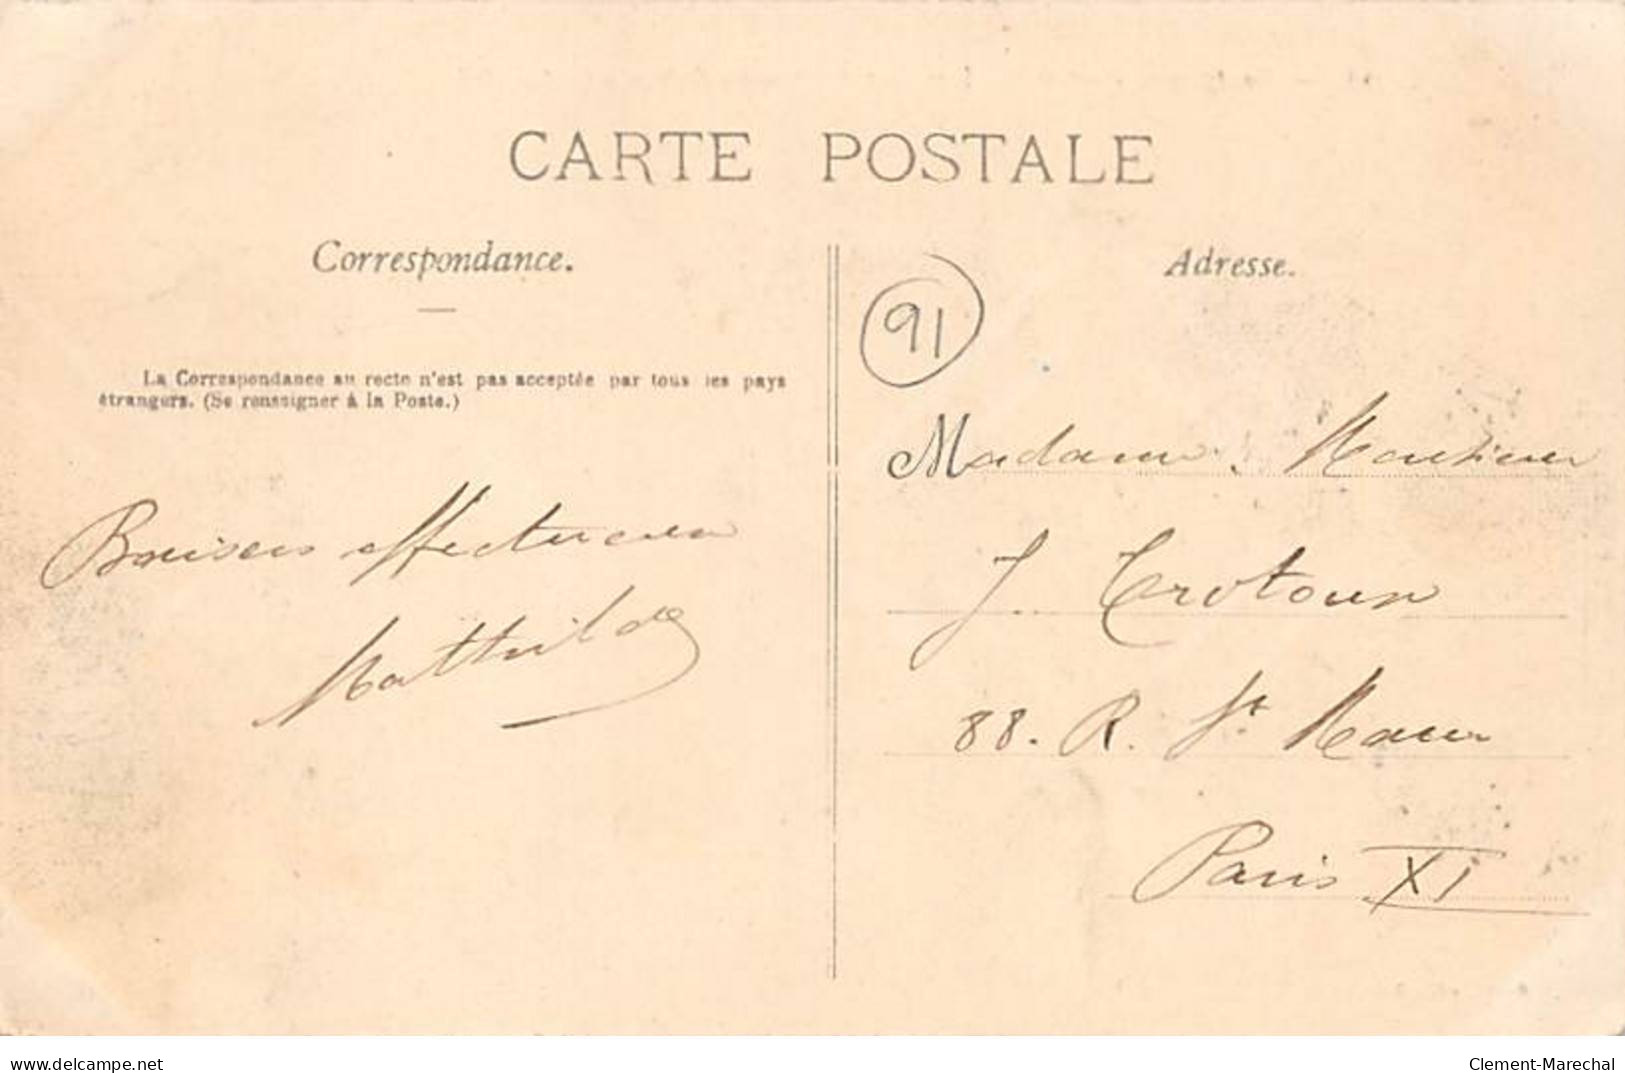 CARTE POSTALE
Correspondance.
Adresse.
La Correspondance au recto n'est pas acceptée par tous les pays
étrangers. (Se renseigner à la Poste.)
91
Baisers affectueux
Mathilde
Madame
J Trotoux
88. R. St Maur
Paris XI
www.delcampe.net
Clement-Marechal